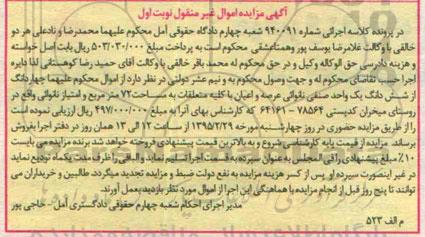 آگهی مزایده اموال غیر منقول نوبت اول
در پرونده کلاسه اجرائی شماره ۹۴۰۰۹۱ شعبه چهارم دادگاه حقوقی آمل محکوم علیهما محمدرضا و نادعلی هر دو
خالقی با وکالت غلامرضا یوسف پور وهمتاعشقی محکوم است به پرداخت مبلغ ۵۰۳/۰۳۰/۰۰۰ ریال بابت اصل خواسته
و هزینه دادرسی حق الوکاله وکیل و در حق محکوم له محمد باقر خالقی با وکالت آقای حمید رضا کوهستانی لذا دایره
اجرا حسب تقاضای محکوم له و جهت وصول محکوم به و نیم عشر دولتی در نظر دارد از اموال محکوم علیهما چهاردانگ
از شش دانگ یک واحد صنفی نانوائی عرصه و اعیان با کلیه متعلقات به مساحت ۷۲ متر مربع و امتیاز نانوائی واقع در
روستای میخران کدپستی ۷۸۵۶۴ – ۶۴۱۶۱ که کارشناس بهای آنرا به مبلغ ۴۹۷/۰۰۰/۰۰۰ ریال ارزیابی نموده است
را از طریق مزایده حضوری در روز چهارشنبه مورخه ۱۳۹۵/۲/۲۹ از ساعت ۱۲ الی ۱۳ همان روز در دفتر اجرا بفروش
برساند. مزایده از قیمت پایه کارشناسی شروع و به بالاترین قیمت پیشنهادی فروخته خواهد شد برنده مزایده می بایست
۱۰٪ مبلغ پیشنهادی رافی المجلس به عنوان سپرده به قسمت اجرا تسلیم نماید والباقی را ظرف مدت یکماه تودیع نماید
در غیر اینصورت سپرده او پس از کسر هزینه مزایده به نفع دولت ضبط و مزایده تجدید میگردد. طالبین و خریداران می
توانند تا پنج روز قبل از انجام مزایده با هماهنگی این اجرا از اموال مورد نظر بازدید بعمل آورند.
مدیر اجرای احکام شعبه چهارم حقوقی دادگستری آمل - حاجی پور
م الف ۵۲۳